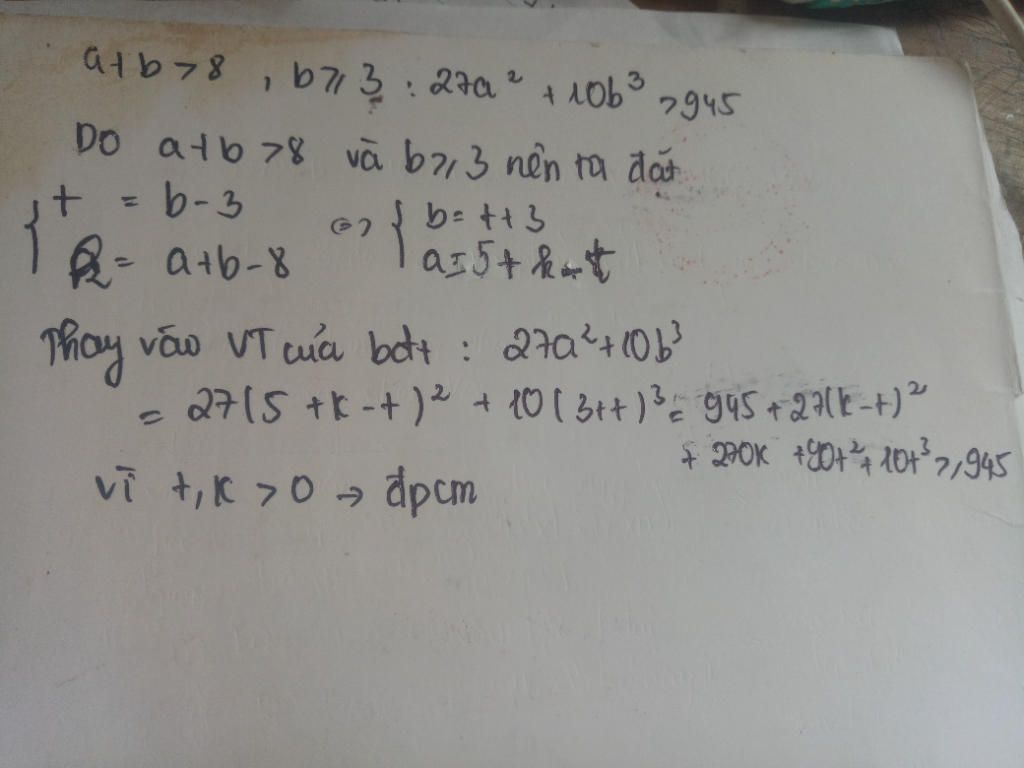 a+b > 8 , b ⩾ 3 : 27a² + 10b³ > 945
Do a+b > 8 và b ⩾ 3 nên ta đặt
{ t = b - 3 <=> { b = t+3
k = a+b-8 a = 5 + k - t
Thay vào VT của bđt : 27a² + 10b³
= 27(5 + k - t)² + 10(3+t)³ = 945 + 27(k-t)²
+ 270k + 90t² + 10t³ ⩾ 945
vì t, k > 0 → đpcm